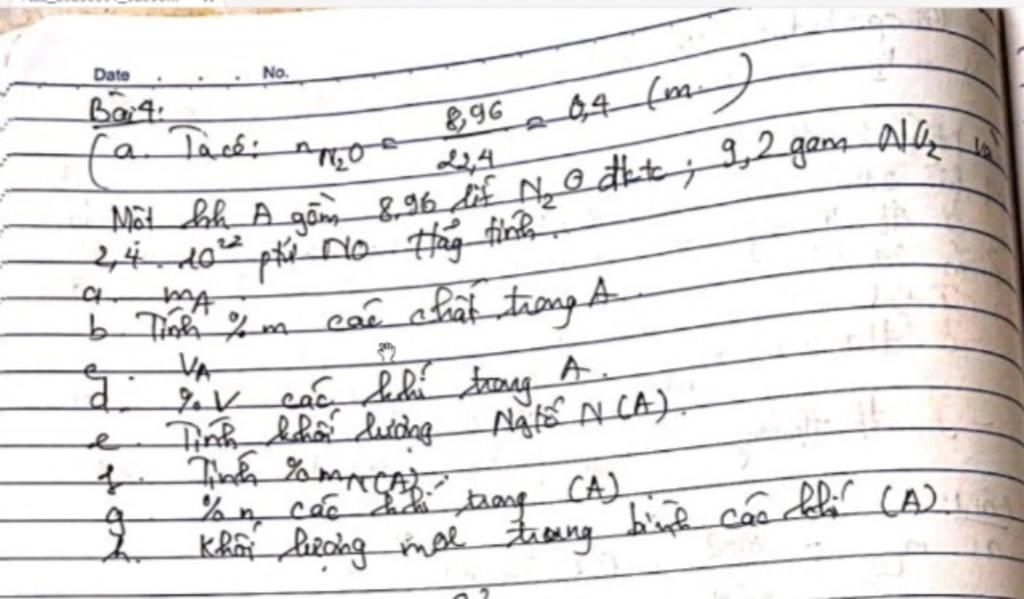 Date . . . . No.
Bài 4:
(a. Ta có: nN₂O = 8,96 / 22,4 = 0,4 (m )
Một hh A gồm 8,96 lít N₂O đktc ; 9,2 gam NO₂ và
2,4. 10²² ptử NO Hãy tính.
a. mA
b Tính % m các chất trong A.
c. VA
d. % V các khí trong A.
e. Tính khối lượng Ngtố N (A).
f. Tính % mN (A).
g % n các khí trong (A)
h. Khối lượng mol trung bình các khí (A)